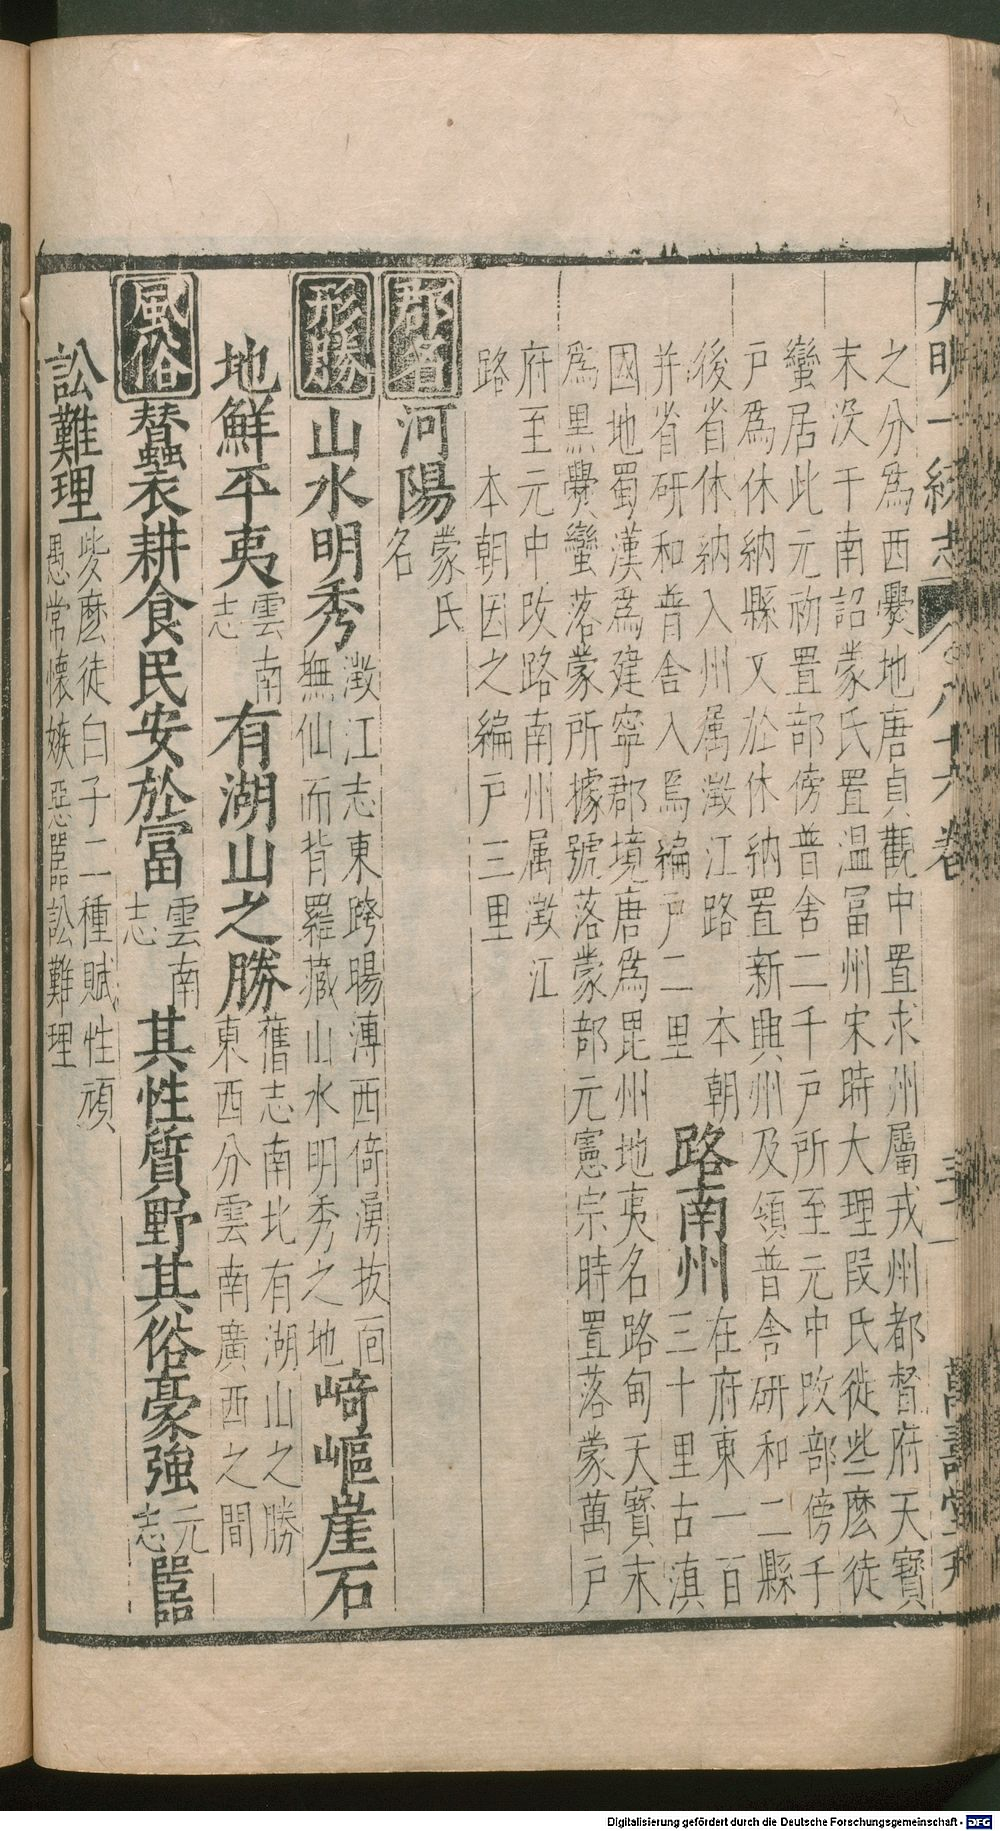 大明一統志 卷八十六卷 三十一 萬壽堂刊
之分爲西爨地唐貞觀中置求州屬戎州都督府天寶
末没于南詔蒙氏置温冨州宋時大理段氏徙些麽徒
蠻居此元初置部傍普舍二千戸所至元中改部傍千
戸爲休納縣又於休納置新興州及領普舍研和二縣
後省休納入州属澂江路 本朝
并省研和普舍入焉編戸二里
路南州
在府東一百
三十里古滇
國地蜀漢爲建寧郡境唐爲毘州地夷名路甸天寳末
爲黒爨蠻落蒙所據號落蒙部元憲宗時置落蒙萬戸
府至元中改路南州属澂江
路 本朝因之編戸三里
郡名
河陽
蒙氏
名
形勝
山水明秀
澂江志東跨暘溥西倚湧㧞面
撫仙而背羅藏山水明秀之地
崎嶇崖石
地鮮平夷
雲南
志
有湖山之勝
舊志南北有湖山之勝
東西分雲南廣西之間
風俗
蠶衣耕食民安於富
雲南
志
其性質野其俗豪強
元
志
嚚
訟難理
些麽徒白子二種賦性頑
愚常懷嫉惡嚚訟難理
Digitalisierung gefördert durch die Deutsche Forschungsgemeinschaft - DFG